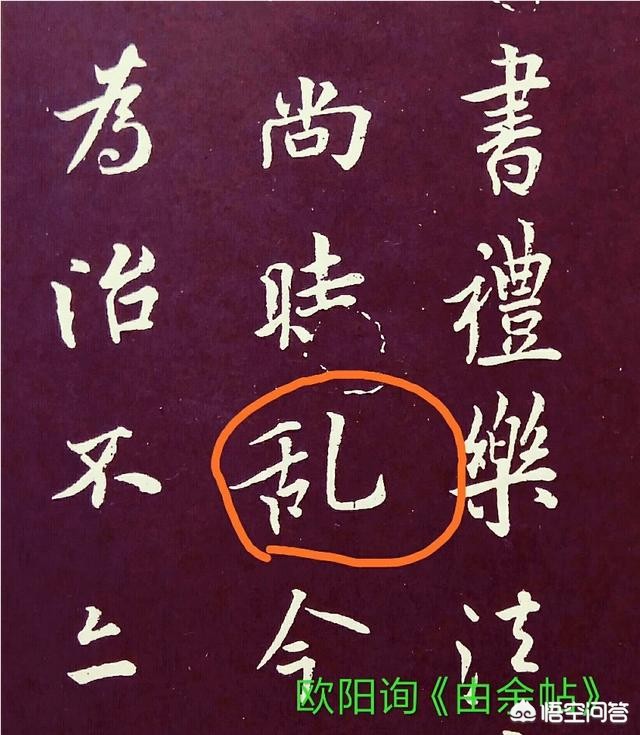 書禮樂法
尚時乱今
為治不亦
欧阳询《由余帖》
悟空问答